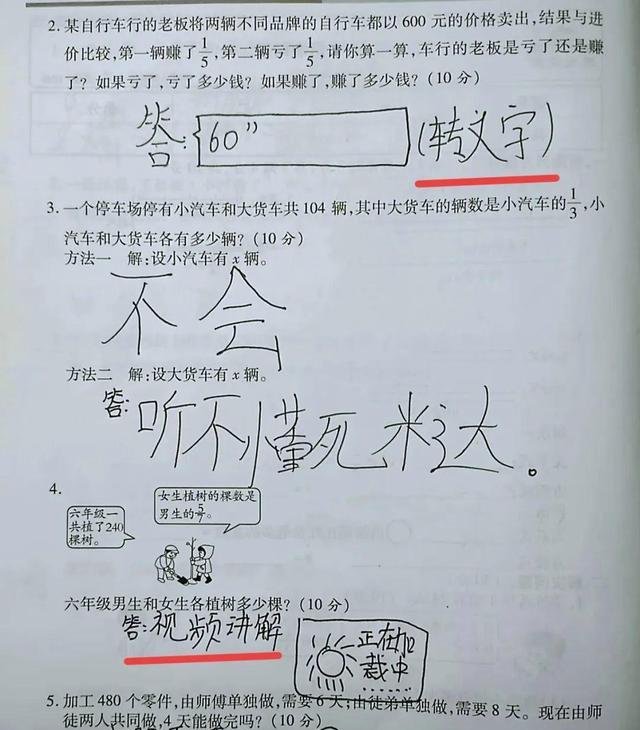 2. 某自行车行的老板将两辆不同品牌的自行车都以 600 元的价格卖出,结果与进
价比较,第一辆赚了1/5,第二辆亏了1/5,请你算一算,车行的老板是亏了还是赚
了?如果亏了,亏了多少钱?如果赚了,赚了多少钱?(10 分)
答: 60” (转文字)
3. 一个停车场停有小汽车和大货车共 104 辆,其中大货车的辆数是小汽车的1/3,小
汽车和大货车各有多少辆?(10 分)
方法一 解:设小汽车有 x 辆。
不会
方法二 解:设大货车有 x 辆。
答: 听不懂死米达。
4.
女生植树的棵数是
男生的5/7。
六年级一
共植了240
棵树。
六年级男生和女生各植树多少棵?(10 分)
答:视频讲解
正在加
裁中
……
5. 加工 480 个零件,由师傅单独做,需要 6 天;由徒弟单独做,需要 8 天。现在由师
徒两人共同做,4 天能做完吗?(10 分)